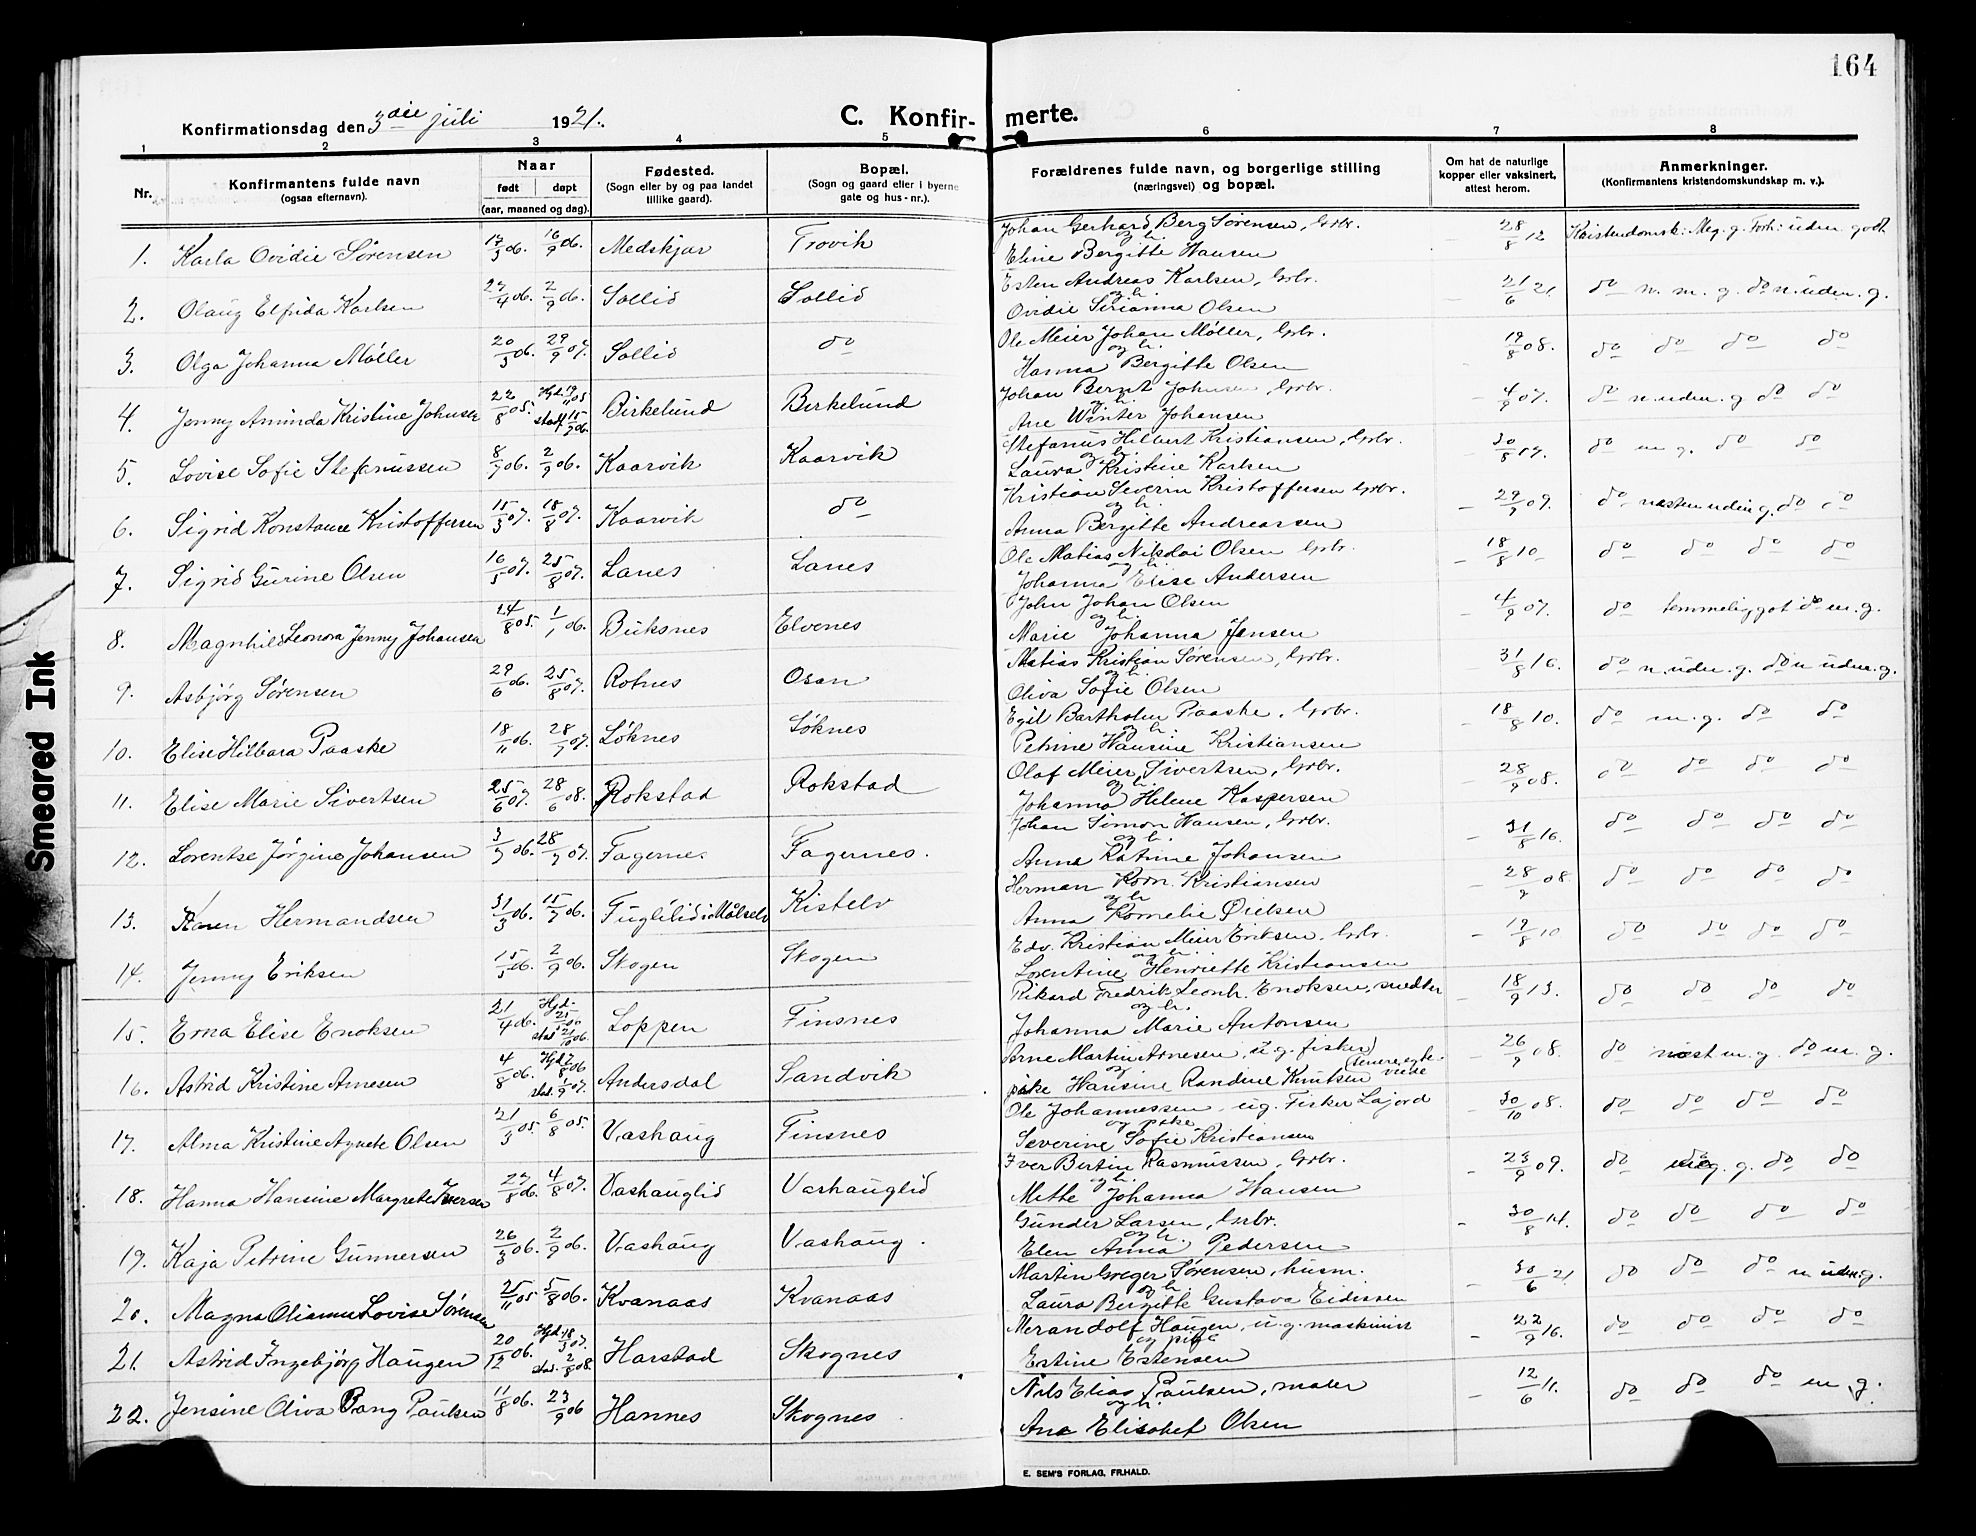 164
Konfirmationsdag den 3die juli 1921. C. Konfirmerte.
1 2 3 4 5 6 7 8
Nr. Konfirmantens fulde navn (ogsaa efternavn). Naar født døpt (aar, maaned og dag). Fødested. (Sogn eller by og paa landet tillike gaard). Bopæl. (Sogn og gaard eller i byerne gate og hus-nr.). Forældrenes fulde navn, og borgerlige stilling (næringsvei) og bopæl. Om hat de naturlige kopper eller vaksinert, attest herom. Anmerkninger. (Konfirmantens kristendomskundskap m. v.).
1. Karla Ovidie Sørensen 17/3 06. 16/9 06. Medskjær Trovik Johan Gerhard Berg Sørensen, Grbr. og h. Eline Bergitte Hansen 28/8 12 Kristendomsk: Meg. g. Forh: uden. godt
2. Olaug Elfrida Karlsen 27/4 06. 2/9 06. Sollid Sollid Esten Andreas Karlsen, Grbr. og h. Ovidie Sirianna Olsen 21/6 21. do n. m. g. do n. uden. g.
3. Olga Johanna Møller 20/5 06. 29/9 07. Sollid do Ole Meier Johan Møller, Grbr. og h. Hanna Bergitte Olsen 19/8 08. do do do do
4. Jenny Aminda Kristine Johnsen 22/8 05. Hjd. 19/11 05 stadf. 15/9 06. Birkelund Birkelund Johan Bernt Johnsen, Grbr. og h. Ane Winter Johansen 4/9 07. do n. uden. g do do
5. Lovise Sofie Stefanussen 8/7 06. 2/9 06. Kaarvik Kaarvik Stefanus Hilbert Kristiansen, Grbr. og h. Laura Kristine Karlsen 30/8 17. do m g. do do
6. Sigrid Konstance Kristoffersen 15/3 07. 18/8 07. Kaarvik do Kristian Severin Kristoffersen Grbr. og h. Anna Bergitte Andreassen 29/9 09. do næsten uden g. do do
7. Sigrid Gurine Olsen 16/5 07. 25/8 07. Lanes Lanes Ole Matias Nikolai Olsen Grbr. og h. Johanna Elise Andersen 18/8 10 do do do do
8. Magnhild Leonora Jenny Johansen 24/8 05. 1/1 06. Buksnes Elvenes John Johan Olsen og h. Marie Johanna Jensen 4/9 07. do temmelig got do m. g.
9. Asbjørg Sørensen 29/6 06. 25/8 07. Rotnes Osan Matias Kristian Sørensen, Grbr. og h. Oliva Sofie Olsen 31/8 16. do n. uden. g. do n uden. g.
10. Elise Hilbara Paaske 18/11 06. 28/7 07. Løknes Løknes Egil Bartholm Paaske, Grbr. og h. Petrine Hansine Kristiansen 18/8 10. do m. g. do do
11. Elise Marie Sivertsen 25/6 07. 28/6 08. Rokstad Rokstad Olaf Meier Sivertsen, Grbr. og h. Johanna Helene Kaspersen 28/9 08. do do do do
12. Lorentse Jørgine Johansen 3/7 06. 28/7 07. Fagernes Fagernes. Johan Simon Hansen, Grbr. og h. Anna Katrine Johansen 31/8 16. do do do do
13. Karen Hermandsen 31/3 06. 15/7 06. Fuglilid i Målselv Kistelv Herman Korn. Kristiansen og h Anna Kornelie Øielsen 28/9 08. do do do do
14. Jenny Eriksen 15/5 06. 2/9 06. Skogen Skogen Edv. Kristian Meier Eriksen, Grbr. og h. Lorentine Henriette Kristiansen 19/8 10 do do do do
15. Erna Elise Enoksen 21/4 06. Hjd. stad. 21/10 06. Loppen Finsnes Rikard Fredrik Leonh. Enoksen, smed og h. Johanna Marie Antonsen 18/9 13. do do do do
16. Astrid Kristine Arnesen 4/8 06. Hjd. 7/8 06 stad. 1/9 07. Andersdal Sandvik Arne Martin Arnesen, u. g. fisker og (senere egteviede) pike Hansine Randine Knutsen 26/9 08. do næst m. g. do m. g.
17. Alma Kristine Agnete Olsen 21/3 05. 6/8 05. Vashaug Finsnes Ole Johannessen, ug. Fisker Lajord og pike Severine Sofie Kristiansen 30/10 08. do do do do
18. Hanna Hansine Margrete Iversen 27/8 06. 4/8 07. Vashauglid Vashauglid Iver Bertin Rasmussen, Grbr. og h. Mette Johanna Hansen 23/9 09. do meg. g. do do
19. Kaja Petrine Gunnersen 26/3 06. 2/9 06. Vashaug Vashaug. Gunder Larsen, Grbr. og h. Elen Anna Pedersen 30/8 14. do do do do
20. Magna Olianna Lovise Sørensen 25/11 05 5/8 06. Kvanaas Kvanaas Martin Greger Sørensen, husm. og h. Laura Bergitte Gustava Eidissen 30/6 21 do do do n uden. g.
21. Astrid Ingebjørg Haugen 20/12 06. Hjd. 18/3 07. stad. 2/8 08. Harstad Skognes Meran dolf Haugen, u. g. maskinist og pige Estine Estensen 22/9 16. do do do do
22. Jensine Oliva Bang Paulsen 11/8 06. 23/9 06 Hannes Skognes Nils Elias Paulsen, maler og h. Ane Elisabet Olsen 12/6 11. do do do m. g.
E. SEM'S FORLAG, FR.HALD.
Smeared Ink